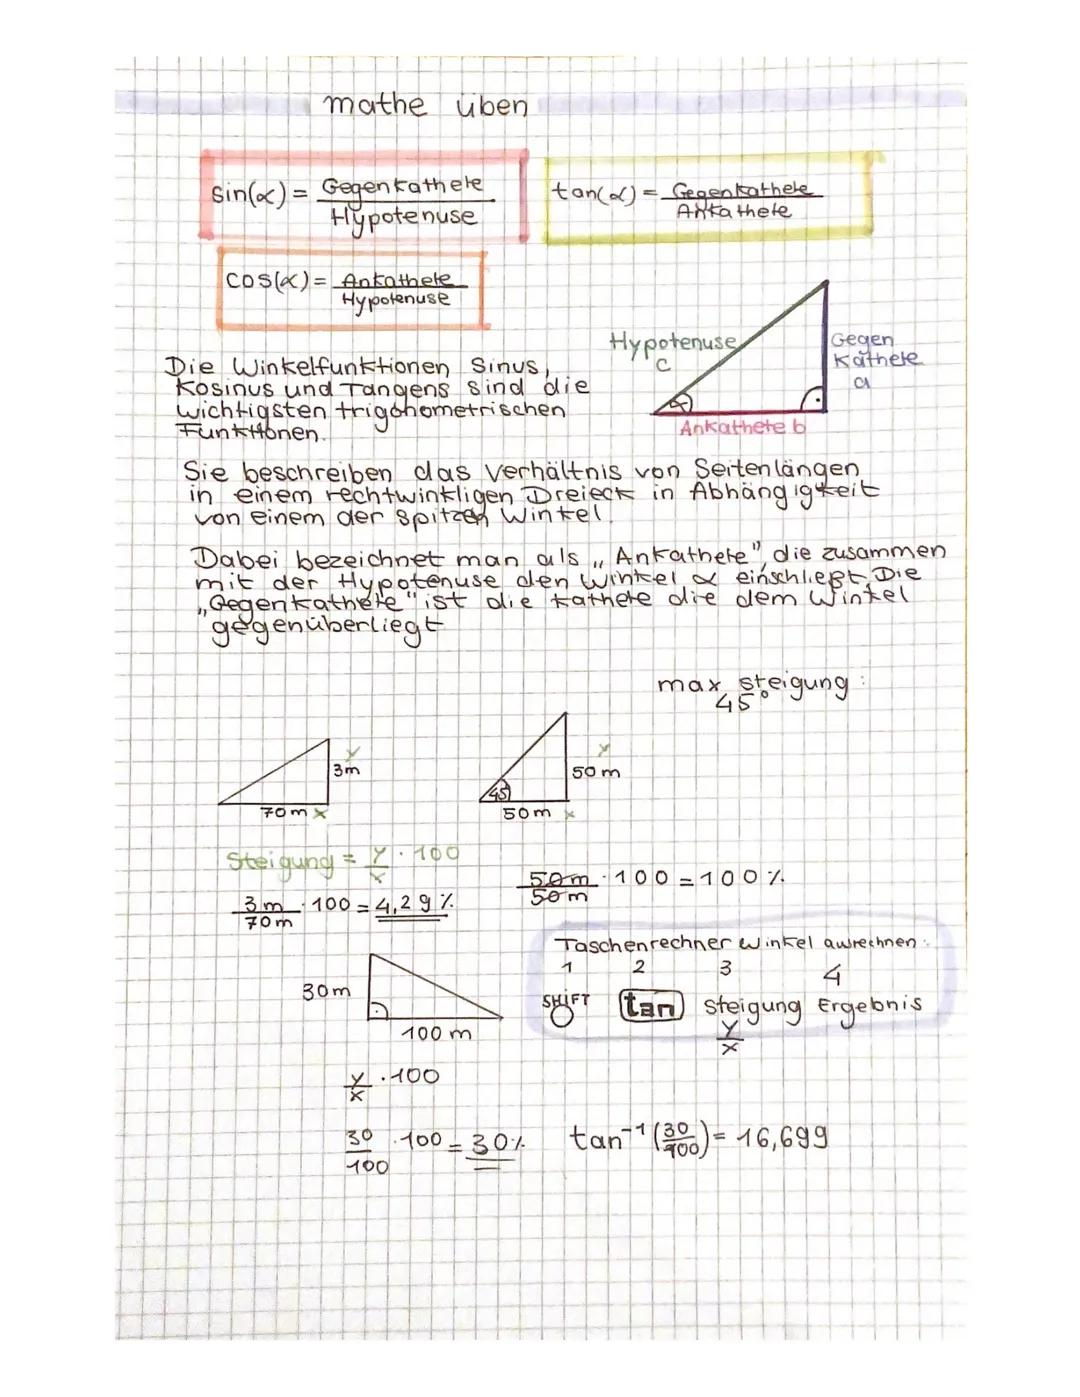 mathe üben
sin(α) = Gegenkathete
Hypotenuse
tan(α) = Gegenkathete
Ankathete
cos(α) = Ankathete
Hypotenuse
Hypotenuse
c
Gegen
Kathete
a
α
Ankathete b
Die Winkelfunktionen Sinus,
Kosinus und Tangens sind die
wichtigsten trigonometrischen
Funktionen.
Sie beschreiben das Verhältnis von Seitenlängen
in einem rechtwinkligen Dreieck in Abhängigkeit
von einem der spitzen Winkel.
Dabei bezeichnet man als „Ankathete", die zusammen
mit der Hypotenuse den Winkel α einschließt. Die
„Gegenkathete" ist die kathete die dem Winkel
gegenüberliegt
max. steigung:
45°
y
3m
70m x
y
50m
45
50m x
Steigung = y/x · 100
3m/70m · 100 = 4,29%
50m/50m · 100 = 100%
Taschenrechner Winkel ausrechnen:
1 2 3 4
SHIFT tan steigung Ergebnis
y/x
30m
100 m
y/x · 100
30/100 · 100 = 30% tan⁻¹(30/100) = 16,699